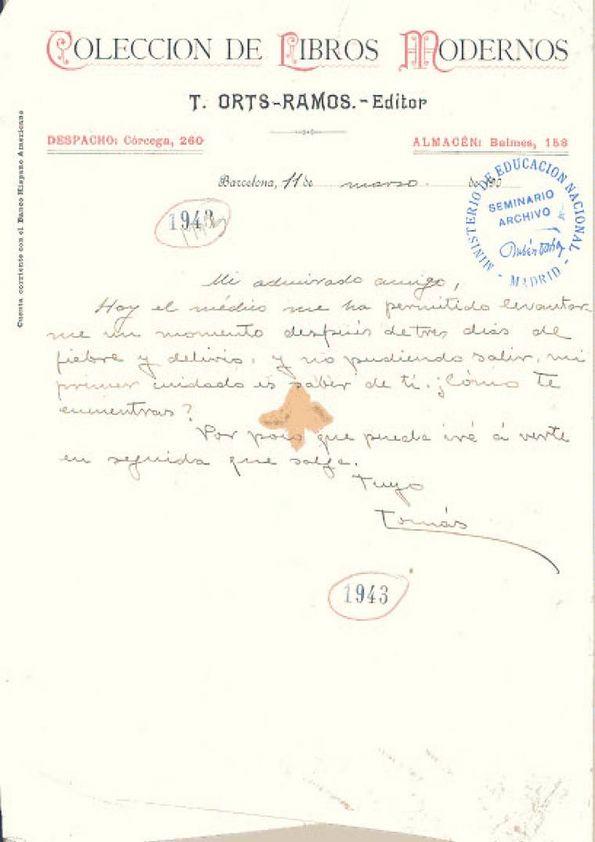 COLECCION DE LIBROS MODERNOS
T. ORTS-RAMOS.-Editor
DESPACHO: Córcega, 260
ALMACÉN: Balmes, 158
Cuenta corriente con el Banco Hispano Americano
Barcelona, 11 de marzo de 190
MINISTERIO DE EDUCACION NACIONAL - MADRID -
SEMINARIO
ARCHIVO
Rubén Darío
1943
Mi admirado amigo,
Hoy el médico me ha permitido levantar
me un momento después de tres dias de
fiebre y delirio, y no pudiendo salir, mi
primer cuidado es saber de tí. ¿Cómo te
encuentras?
Por poco que pueda iré á verte
en seguida que salga.
Tuyo
Tomás
1943